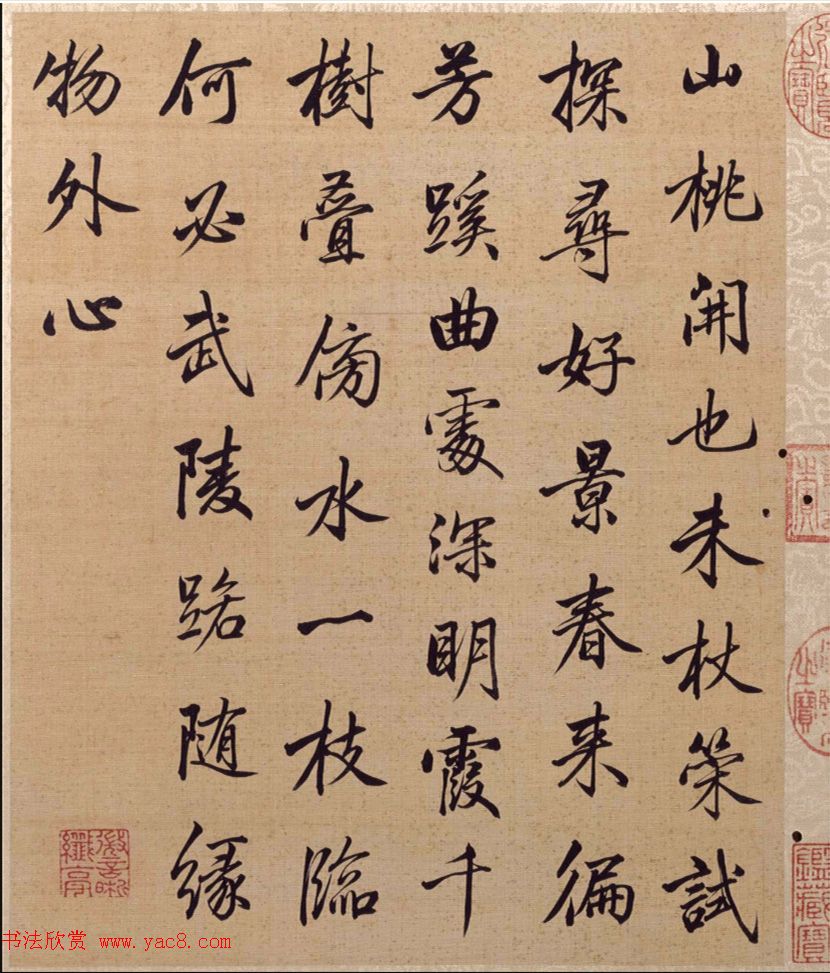 山桃開也未杖策試
探尋好景春来徧
芳蹊曲處深明霞千
樹疊傍水一枝臨
何必武陵路随緣
物外心
鑑藏寶
书法欣赏 www.yac8.com